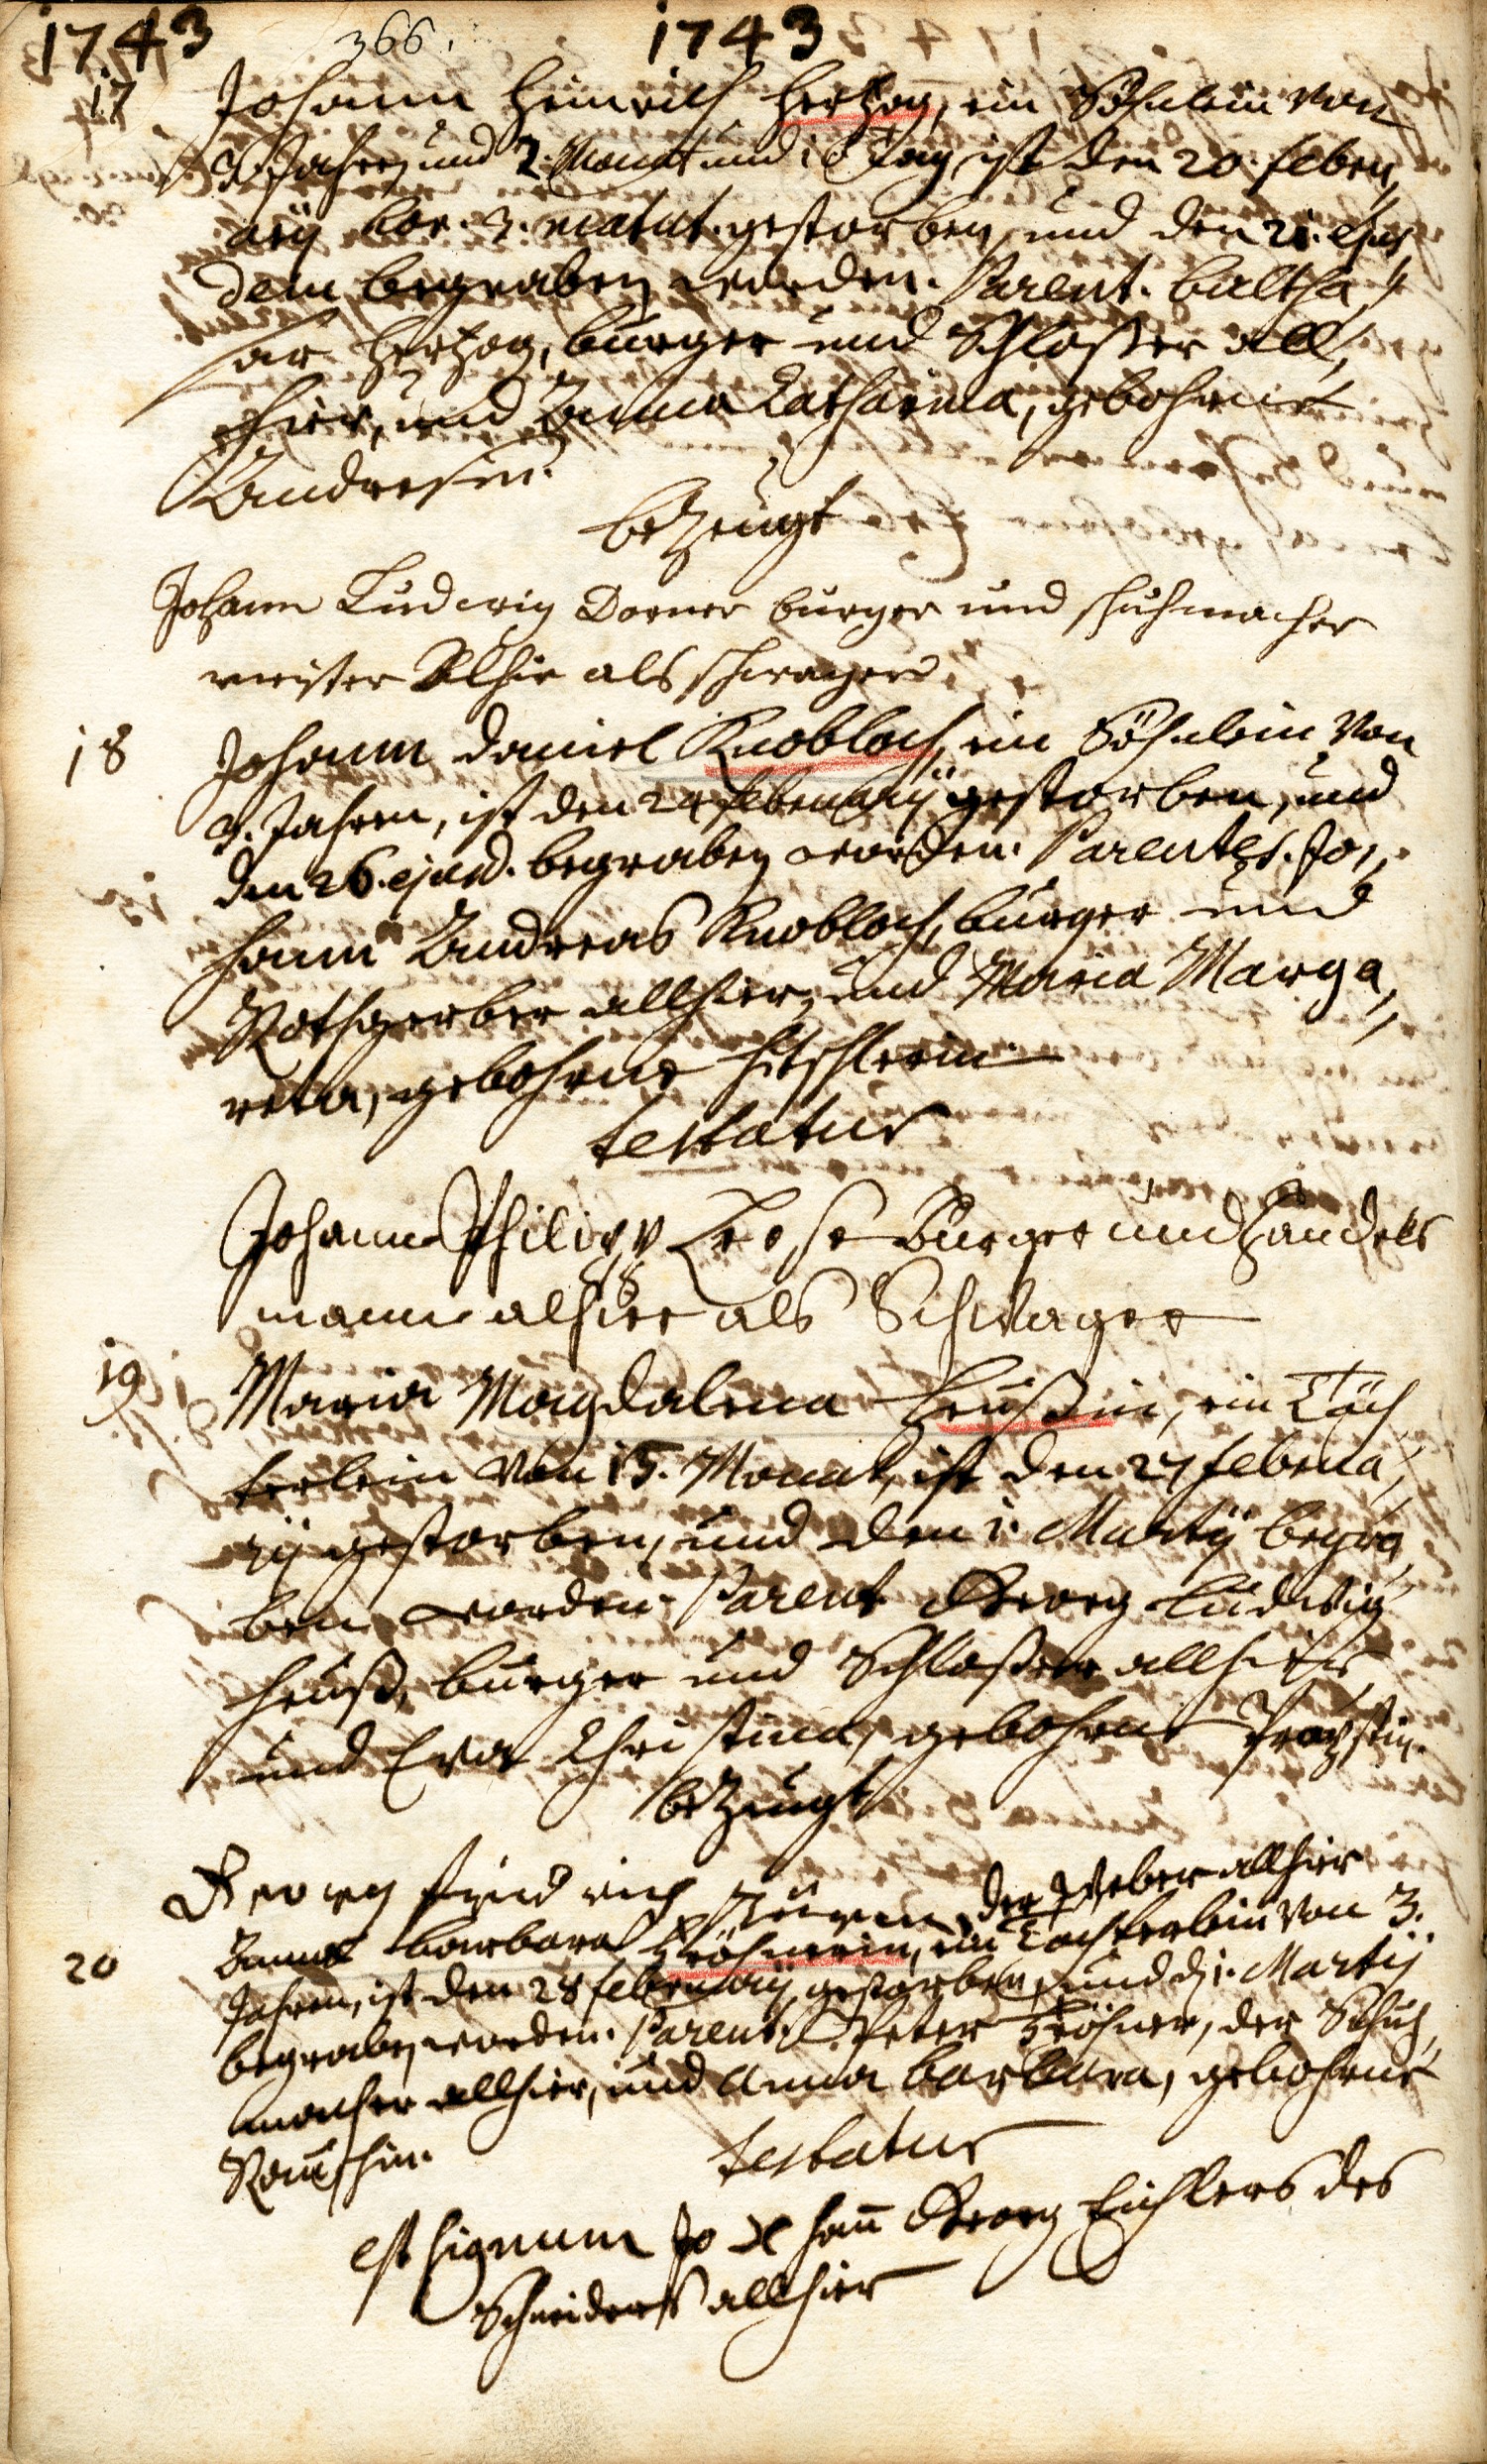 1743 366. 1743
17 Johann Heinrich Hertzog, ein Söhnlein von
3. Jahren und 2. Monat und 10 Tag, ist den 20. Febru,,
arij hor. 3. matut. gestorben, und den 21. ejus
dem begraben worden. Parent. Baltha,,
sar Hertzog, burger und Schloßer all,,
hier, und Anna Catharina, gebohrne
Andresin.
bezeugt
Johann Ludwig Dorner burger und schuhmacher
meister Alhie als schwager
18 Johann Daniel Knobloch, ein Söhnlein von
3. Jahren, ist den 24 Februarij gestorben, und
den 26. ejusd. begraben worden. Parentes. Jo,,
hann Andreas Knobloch, burger und
Rothgerber allhier, und Maria Marga,,
reta, gebohrne Hitschlerin
testatur
Johann Philipp Leose Burger und Handels
mann alhier als Schwager
19 Maria Magdalena Heußin, ein Töch
terlein von 15. Monat, ist den 27 Februa,,
rij gestorben, und den 1. Martij begra,,
ben worden. Parent Georg Ludwig
Heuß, burger und Schloßer allhier
und Eva Christina, gebohrne
bezeugt
Georg der Weber allhier
20 Anna Barbara Höhnerin, ein Töchterlein von 3.
Jahren, ist den 28 Februarij gestorben, und d. 1. Martij
begraben worden. Parent. Peter Höhner, der Schuh,,
macher allhier, und Anna Barbara, gebohrne
testatur
est signum Jo x hann Georg Eichlers des
Schneiders allhier